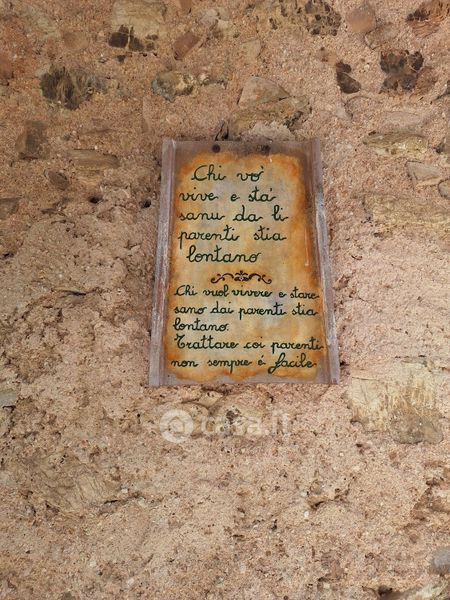 Chi vò
vive e stà
sanu da li
parenti stia
lontano
Chi vuol vivere e stare
sano dai parenti stia
lontano.
Trattare coi parenti
non sempre é facile
casa.it